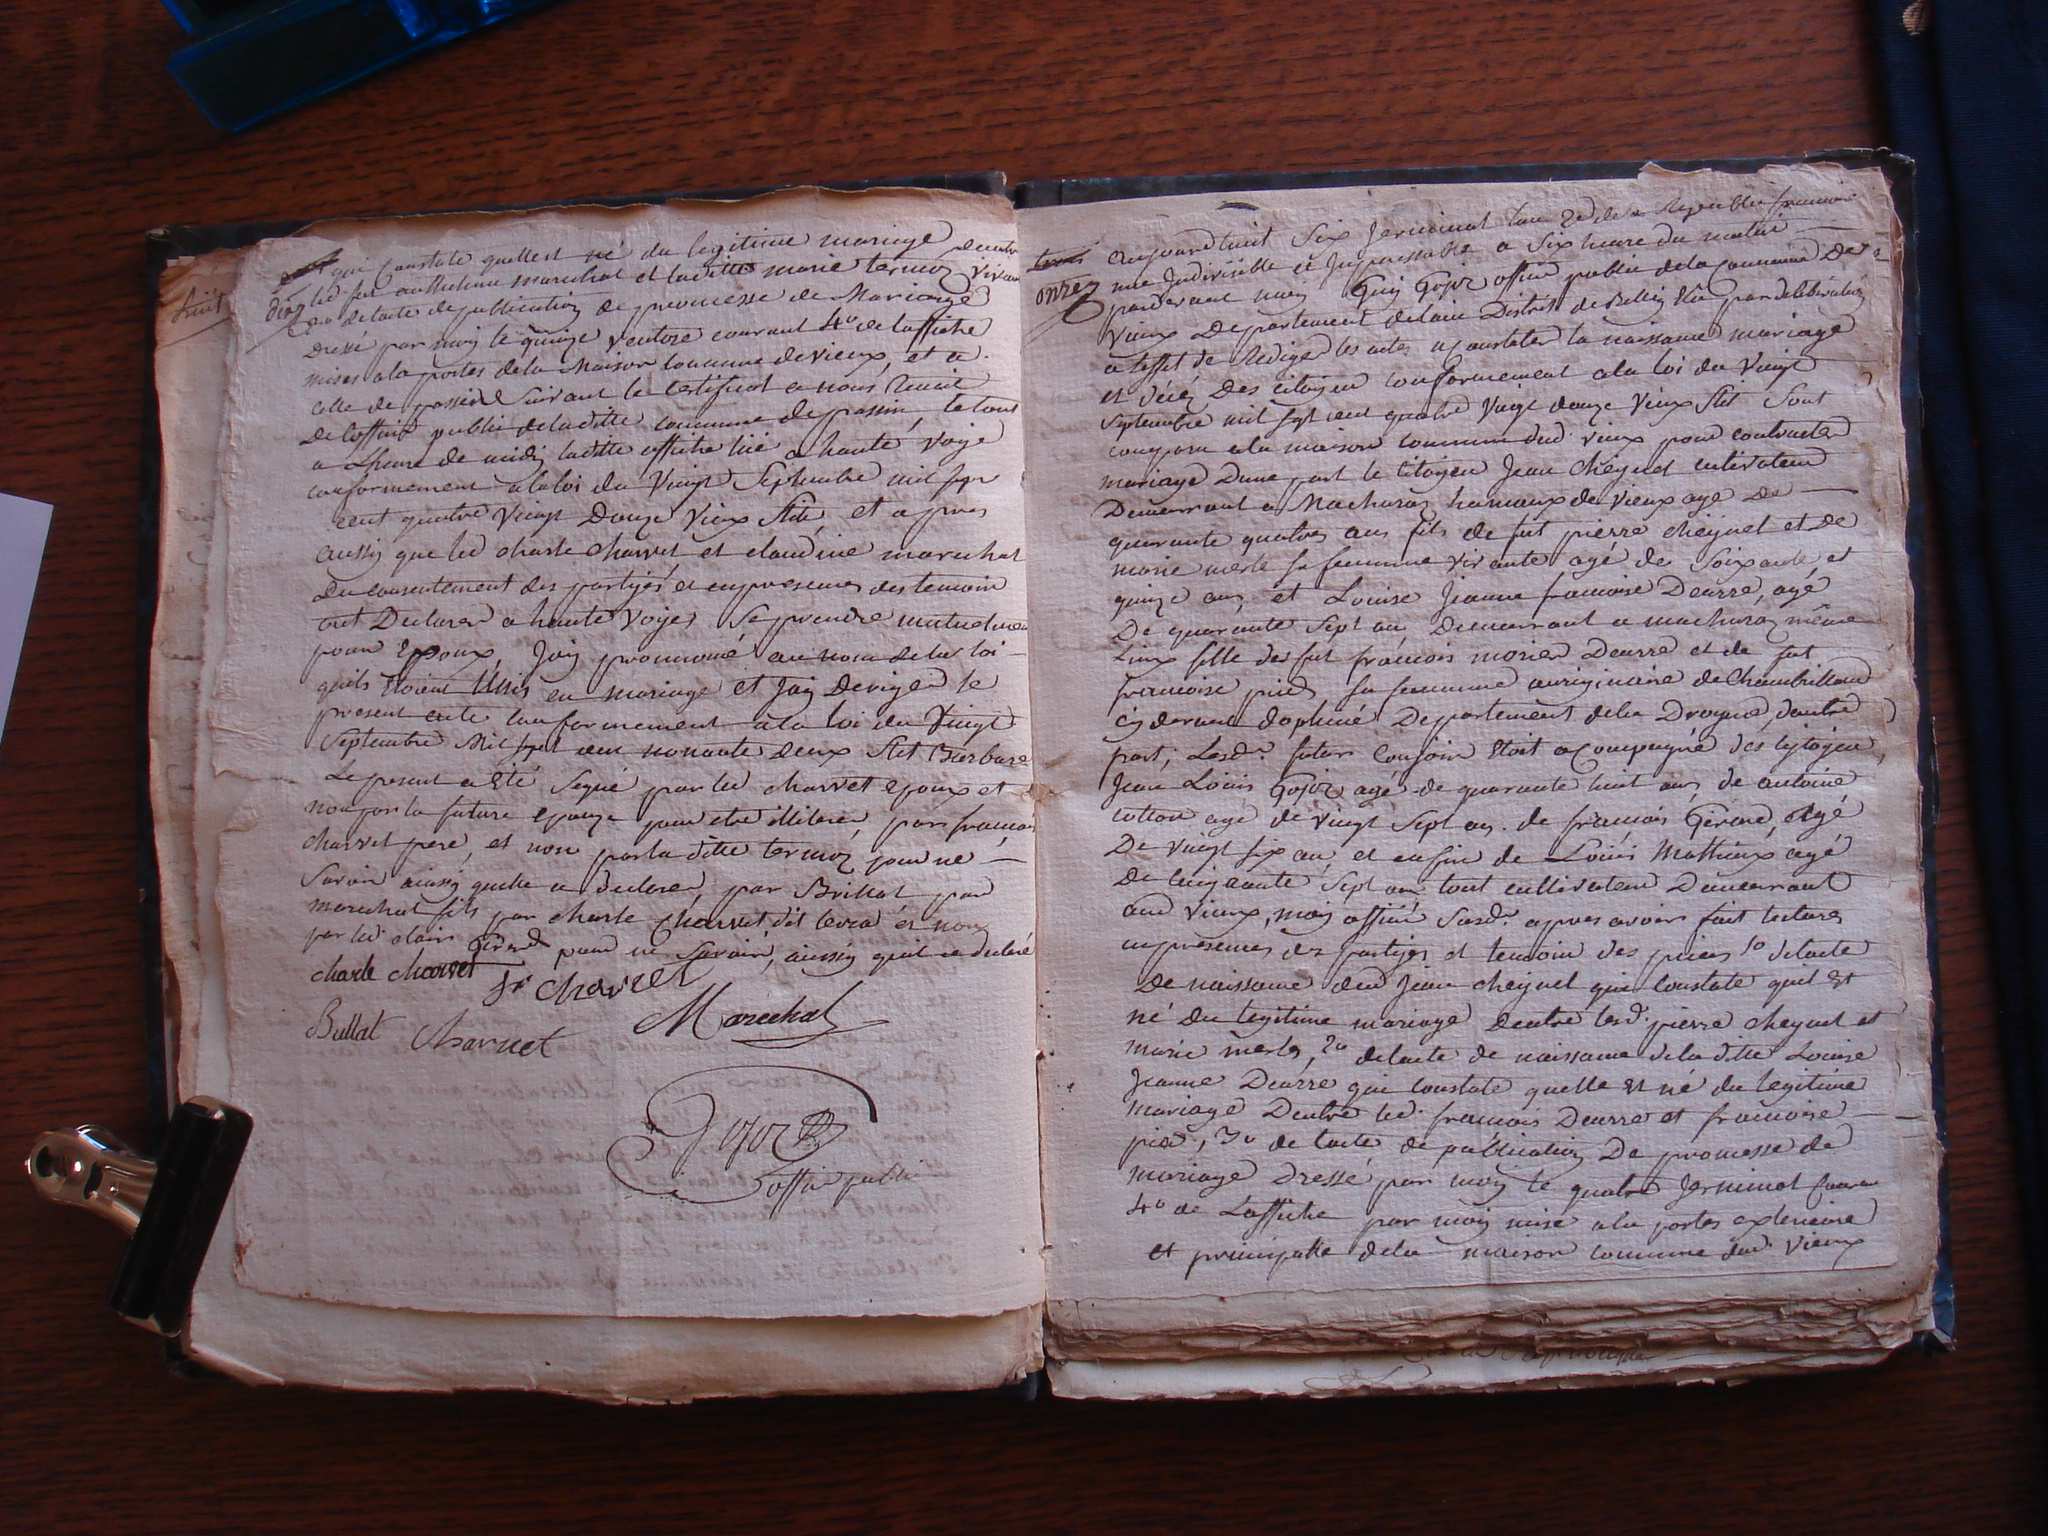 huit
dix
qui Constate quelle est né du legitime mariage dentre
led feu authelme marechat et laditte marie termoz vivan
3º de lacte de publication de promesse de Mariage
Dressé par moy le quinze ventose courant 4º de laffiche
mises ala portes dela Maison commune de vieux, et a
celle de passin Suivant le certificat a nous Remit
De loffice public de laditte commune de passin, le tout
a Lheure de midy laditte affiche lüe a haute voije
conformement ala loi du Vingt Septembre mil sept
cent quatre vingt Douze vieux Stile, et apres
aussy que led charle charvet et claudine marechat
Du consentement des partijes et en presences des temoin
ont Declarer a haute voijes Se prendre mutuelmen
pour Epoux, Jay prononcé au nom dela loi
quils Etoient Unis en mariage et Jay Deriger le
present acte Conformement ala loi du Vingt
Septembre Mil sept cent nonante deux Stil Barbare
Le present a Eté Signé par led charvet epoux et
non par la future epouze pour etre illiteré, par françois
charvet pere, et non par la ditte termoz pour ne
Savoir ainsy quelle a declaré, par Brillat par
marechat fils par charle Charvet dit levra et non
par led clair Girerd pour ne Savoir, ainsy quil a declaré
charle charvet fr charvet
Bullat Charvet Marechal
Gojoz
offici public
onze
aujourdhuit Six Jerminal lan 2d de la Republic francaise
une Indivisible et Imperissable a Six heure du matin
pardevant moy Guy Gojoz officié public dela Commune De
Vieux Departement delain District de Belley Elu par deliberation
a leffet de Rediger les actes a Constater la naissance mariage
et décés Des citoyen conformement ala loi du Vingt
Septembre mil sept cent quatre Vingt douze vieux Stil Sont
comparu ala maison commune dud. vieux pour contracter
mariage Dune part le Citoyen Jean Cheynet cultivateur
Demeurant a Machuraz hamaux de vieux age De
quarante quatres ans fils de fut pierre cheynet et De
marie merle sa femme vivante agé de Soixante et
quinze ans, et Louise Jeanne francoise Deurre, agé
De quarante Sept an, Demeurant a machuraz même
Lieux fille de fut francois morier Deurre et de fut
francoise pied sa femme aurizinaire de Chambrillan
Cy devant dophiné Departement dela Drogme dautre
part; Lesdts. futur Conjoin Etoit acompagné des Cytoyen
Jean Louis Gojoz agé de quarante huit ans, de antoine
cotton agé de vingt Sept an. de francois Gérard, Agé
De vingt six an, et enfin de Louis Mathieux agé
De Cinquante Sept an, tout cultivateur Demeurant
aud vieux, moy officié Susdt. apres avoir fait lecture
en presences des partijes et temoin des pieces 1º de lacte
De naissance dud Jean cheynet qui Constate quil Et
né Du legitime mariage Dentre lesd. pierre cheynet et
marie merle, 2º de lacte de naissance dela ditte Louise
Jeanne Deurre qui Constate quelle Et né du legitime
mariage Dentre led. francois Deurre et francoise
pied, 3º de lacte de publication De promesse de
mariage Dressé par moy le quatre Jerminal Couran
4º de Laffiche par moy mise ala portes exterieure
et principalle dela maison commune dud. Vieux